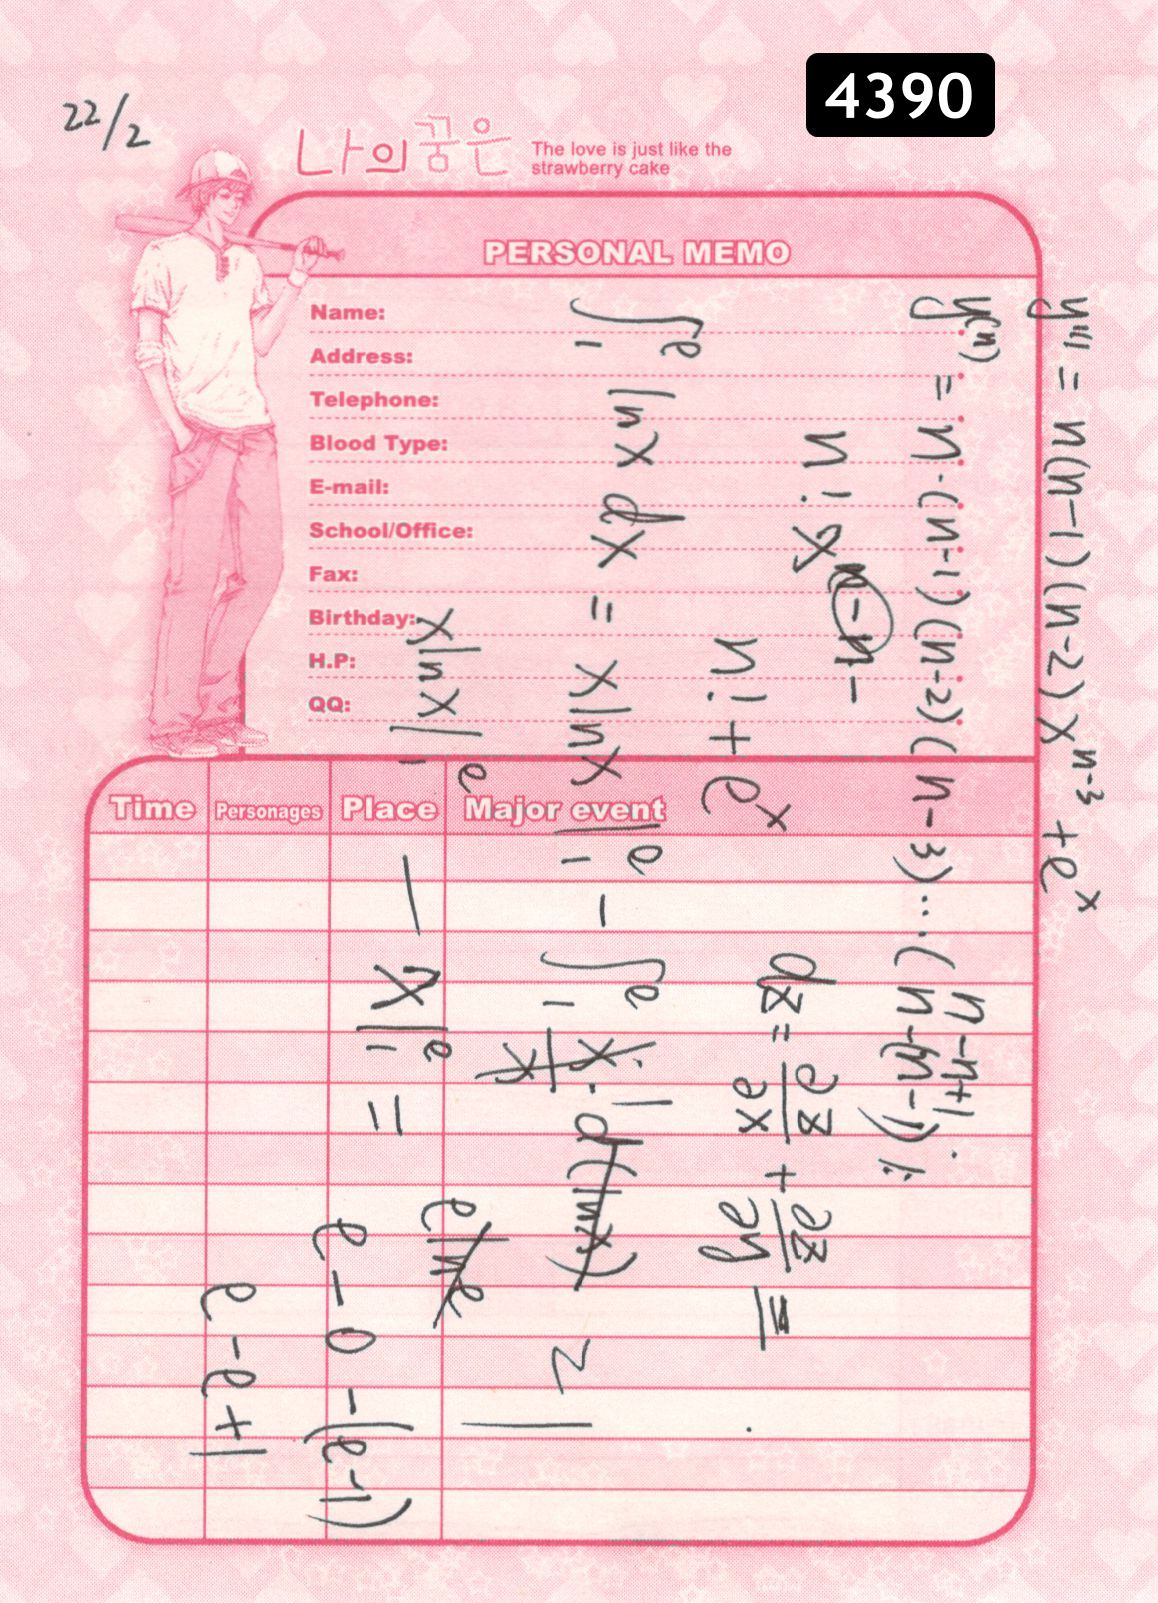 4390
22/2
나의꿈은
The love is just like the
strawberry cake
PERSONAL MEMO
Name:
Address:
Telephone:
Blood Type:
E-mail:
School/Office:
Fax:
Birthday:
H.P:
QQ:
Time Personages Place Major event
y''' = n(n-1)(n-2)x^{n-3} + e^x
y^{(n)} = n·(n-1)(n-2)(n-3)....(n-(n-1))
n-n+1
n! x^{n-n}
n! + e^x
dz = ∂z/∂x + ∂z/∂y =
∫_1^e lnx dx = xlnx|_1^e - ∫_1^e x · d(lnx)
xlnx|_1^e - x|_1^e =
elne
e - 0 - (e-1)
e-e+1